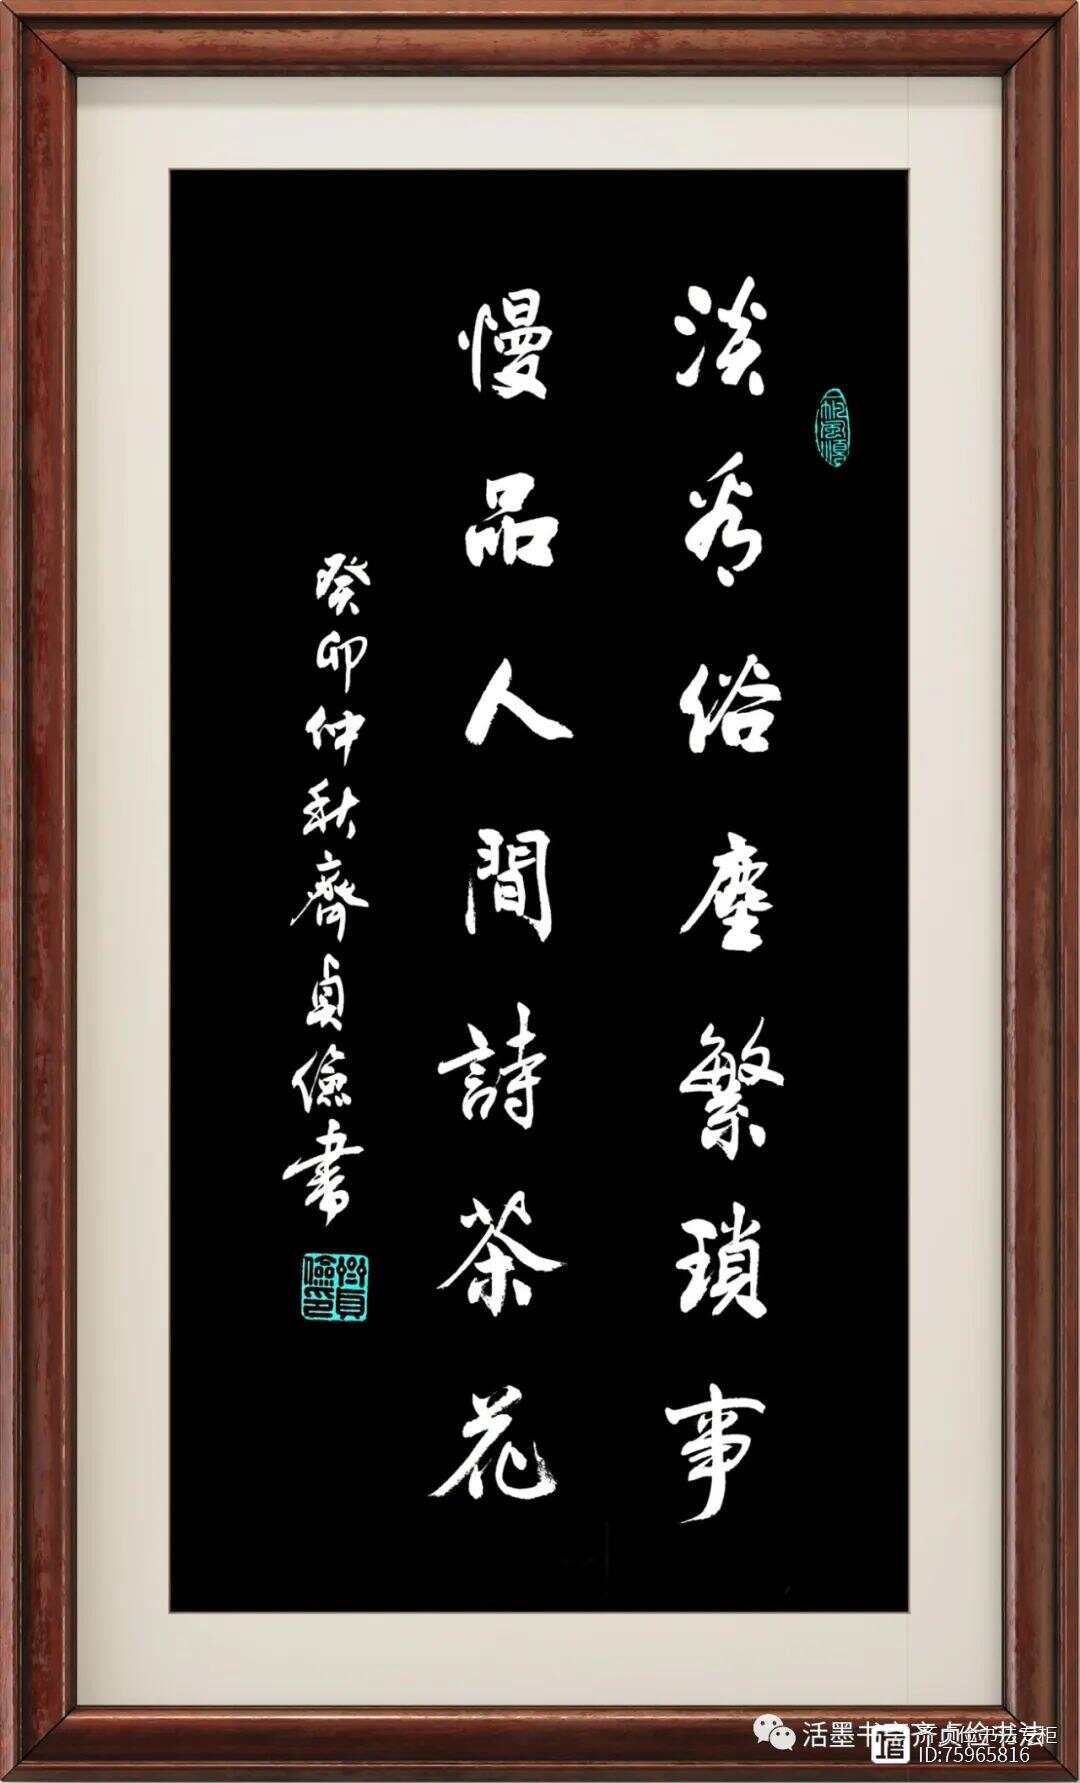 淡看俗塵繁瑣事
慢品人間詩茶花
癸卯仲秋齊貞儉書
帆風順
貞儉
活墨书
齐贞俭书法
ID:75965816